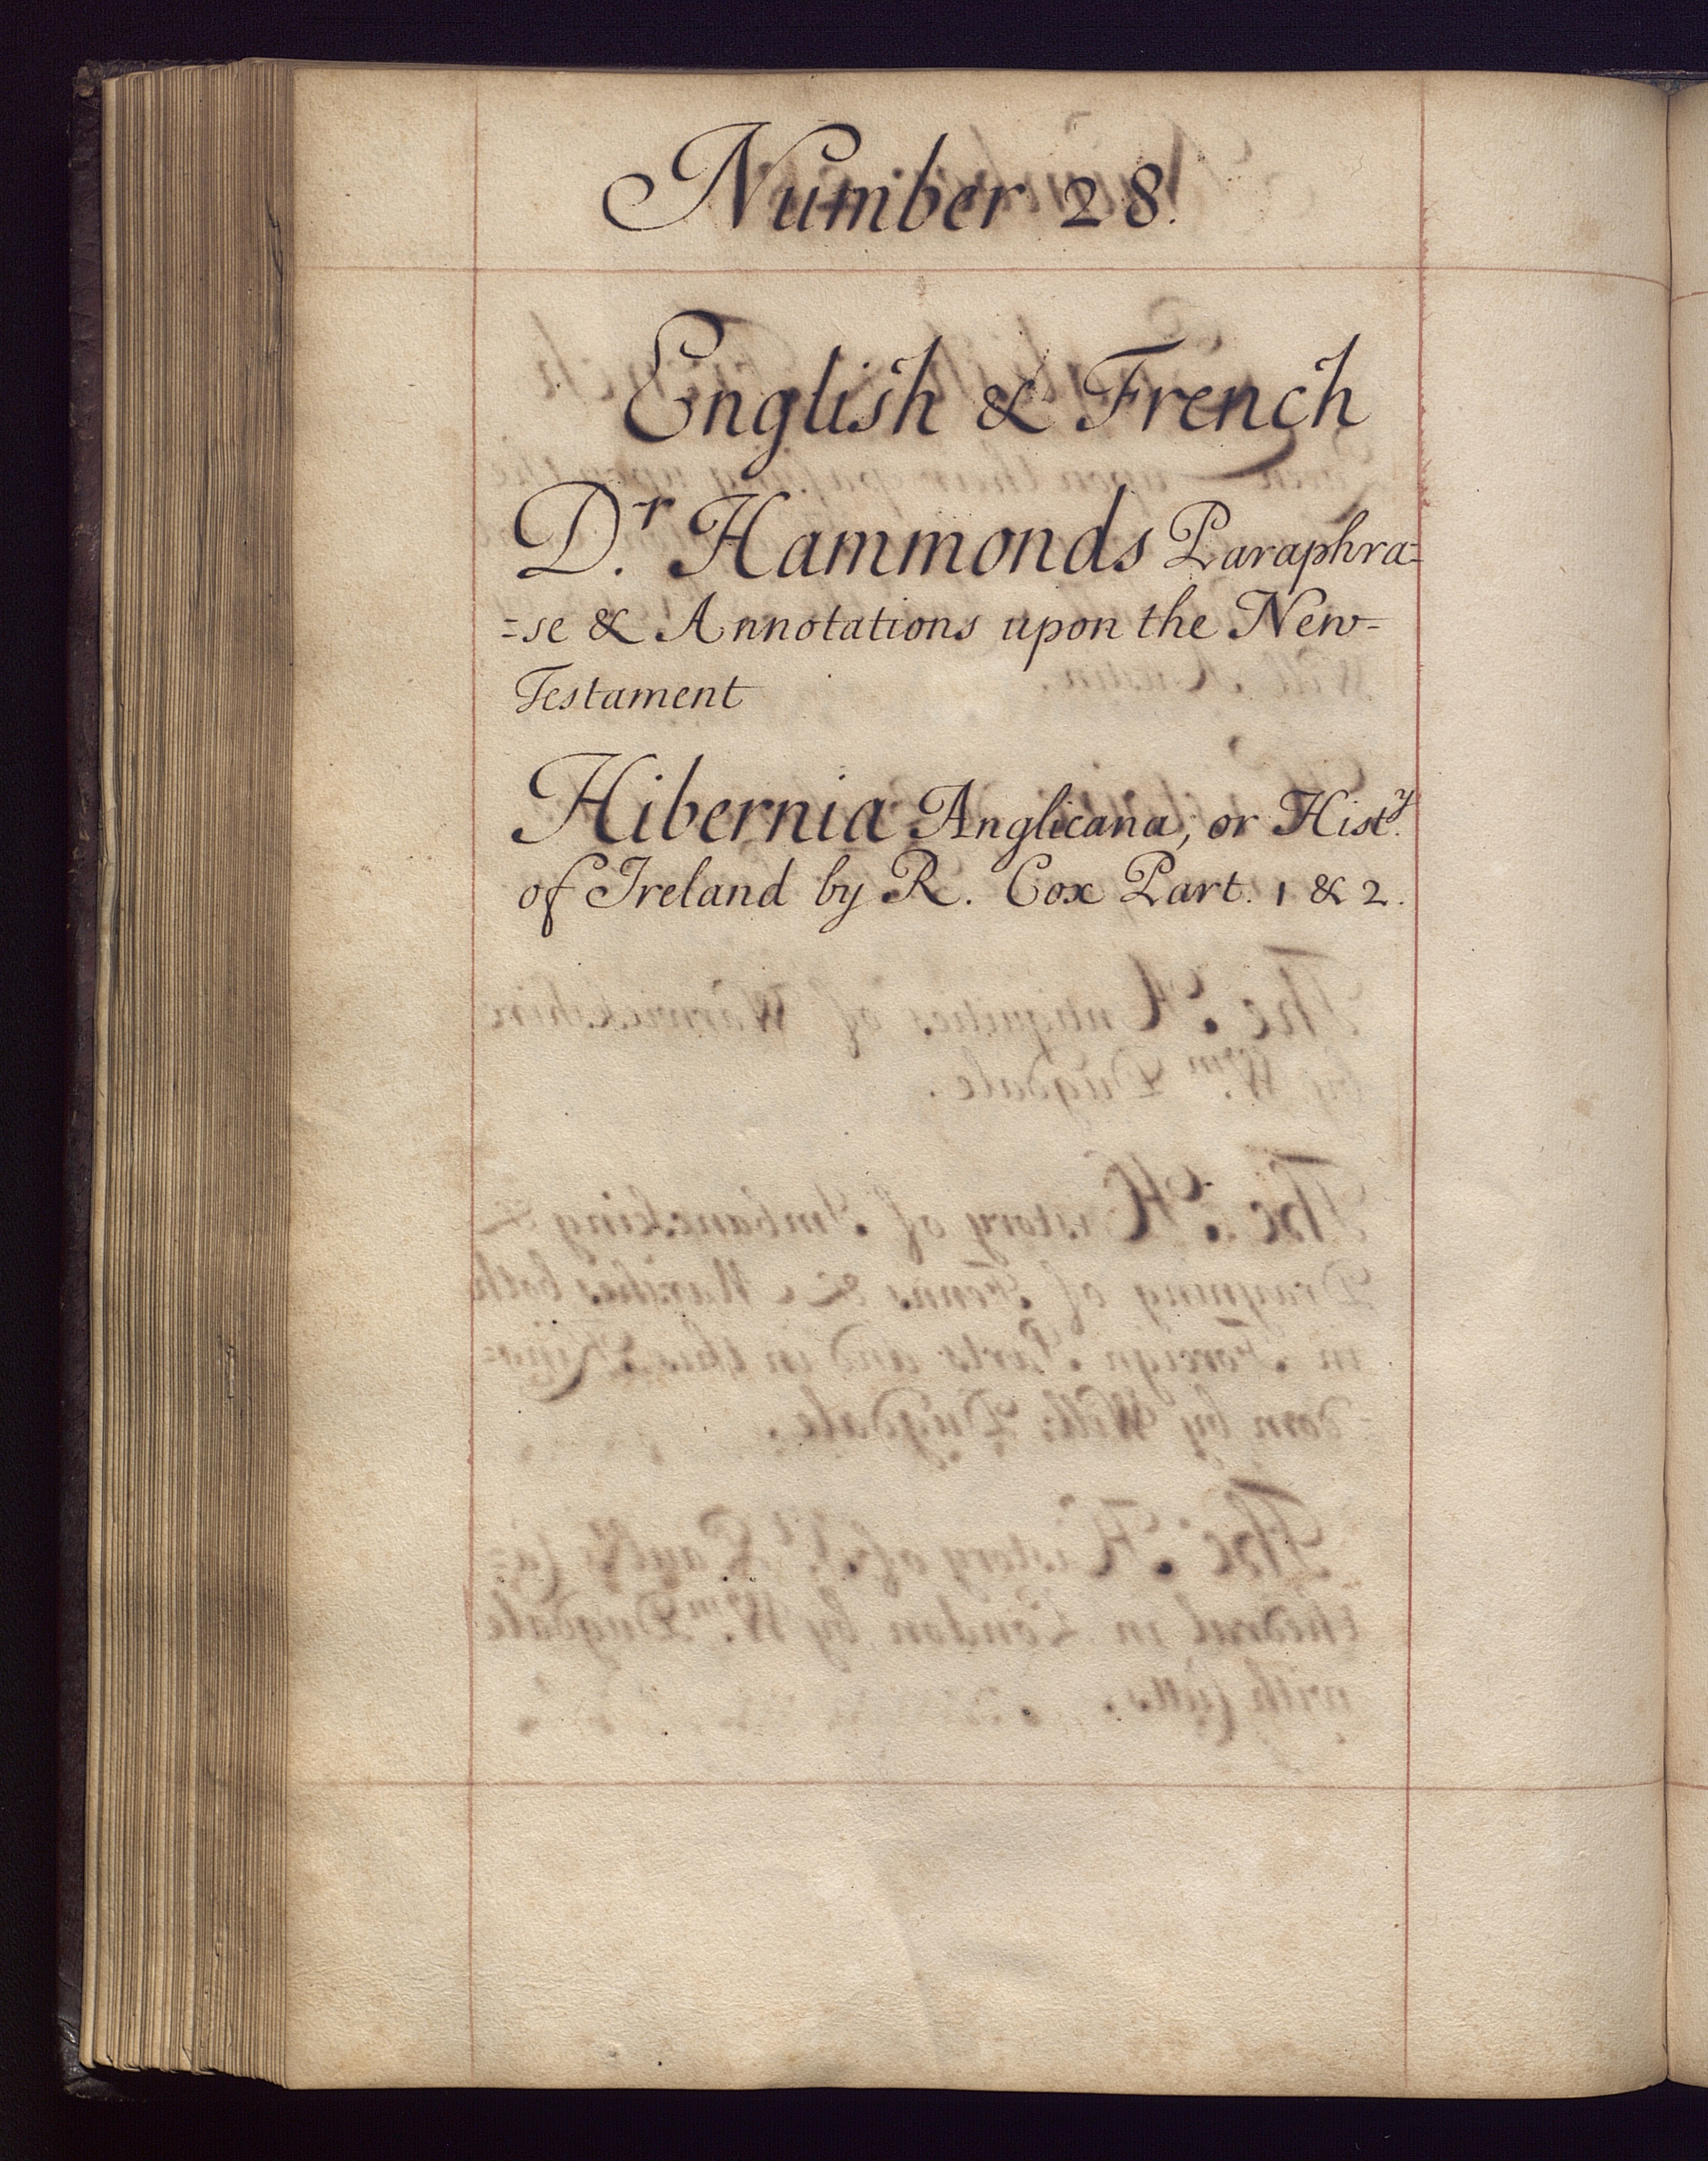 Number 28.
English & French
Dr. Hammonds Paraphra=
=se & Annotations upon the New=
Testament
Hibernia Anglicana, or Histy.
of Ireland by R. Cox Part. 1 & 2.